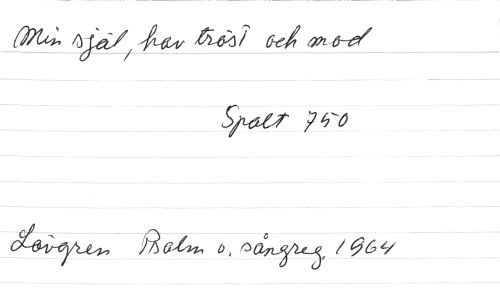 Min själ, hav tröst och mod
Spalt 750
Lövgren Psalm o. sångreg. 1964